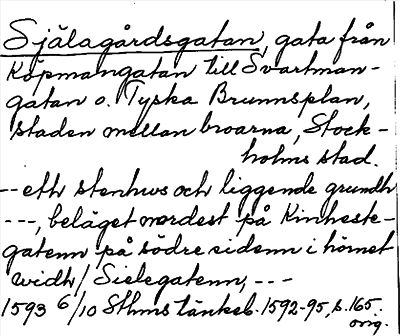 Själagårdsgatan, gata från
Köpmangatan till Svartman-
gatan o. Tyska Brunnsplan,
staden mellan broarna, Stock-
holms stad.
-- eth stenhws och liggende grundh
---, beläget nordest på Kinheste-
gatenn på södre sidenn i hörnet
widh / Sielegatenn, ---
1593 6/10 Sthms tänkeb. 1592-95, s. 165.
orig.